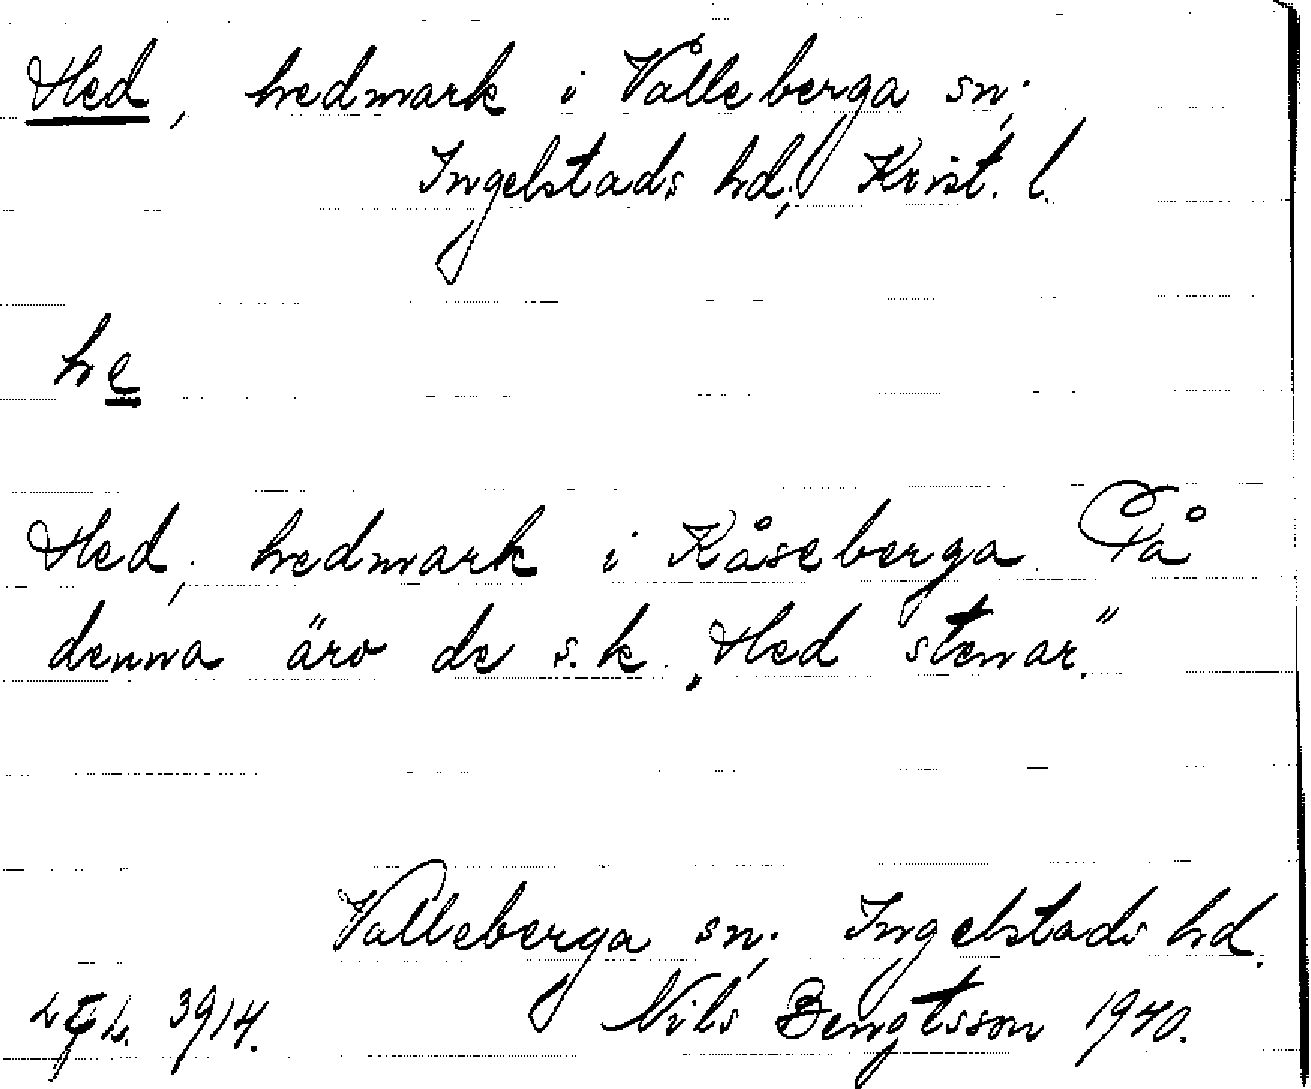 Hed, hedmark i Valleberga sn;
Ingelstads hd; Krist. l.
he
Hed; hedmark i Kåseberga. På
denna äro de s.k. „Hed stenar."
Valleberga sn; Ingelstads hd.
3914. Nils Bengtsson 1940.